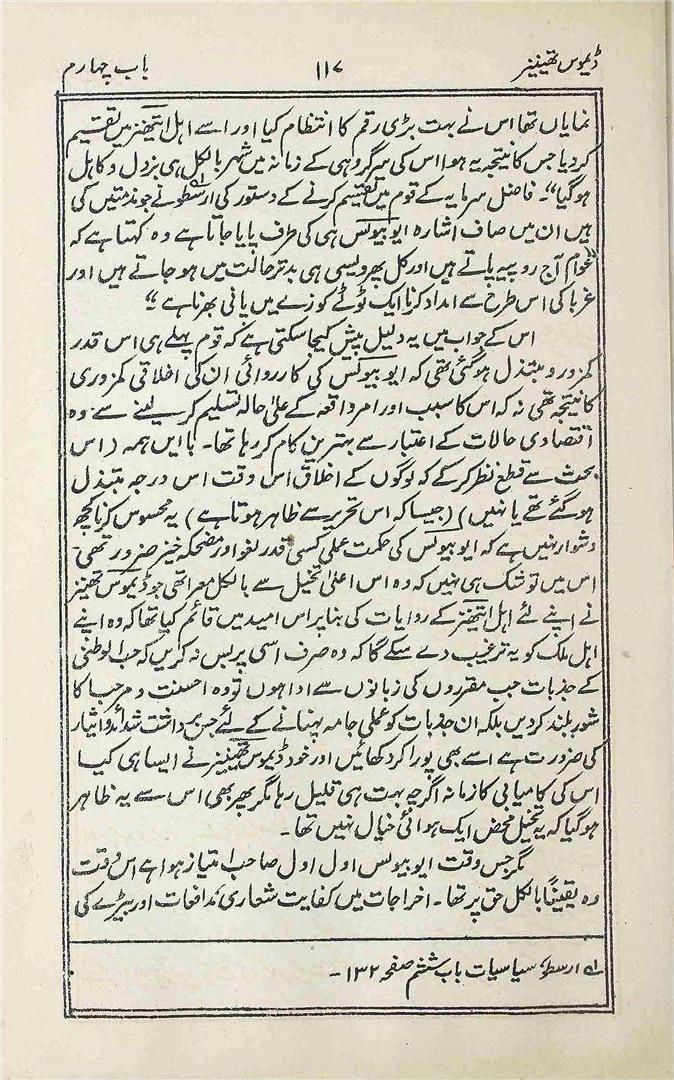 ڈیموس تھینیز ۱۱۷ باب چہارم
نمایاں تھا اس نے بہت بڑی رقم کا انتظام کیا اور اسے اہل ایتھنز میں تقسیم
کر دیا جس کا نتیجہ یہ ہوا اس کی سرگروہی کے زمانہ میں شہر بالکل ہی بزدل و کاہل
ہو گیا"۔ فاضل سرمایہ کے قوم میں تقسیم کرنے کے دستور کی ارسطو نے جو مذمتیں کی
ہیں ان میں صاف اشارہ ایوبیولس ہی کی طرف پایا جاتا ہے وہ کہتا ہے کہ
"عوام آج روپیہ پاتے ہیں اور کل پھر ویسی ہی بدتر حالت میں ہو جاتے ہیں اور
غربا کی اس طرح سے امداد کرنا ایک ٹوٹے کوزے میں پانی بھرنا ہے"
اس کے جواب میں یہ دلیل پیش کیجا سکتی ہے کہ قوم پہلے ہی اس قدر
کمزور و مبتذل ہو گئی تھی کہ ایوبیولس کی کارروائی ان کی اخلاقی کمزوری
کا نتیجہ تھی نہ کہ اس کا سبب اور امر واقعہ کے علیٰ حالہ تسلیم کر لینے سے وہ
اقتصادی حالات کے اعتبار سے بہترین کام کر رہا تھا۔ با ایں ہمہ (اس
بحث سے قطع نظر کر کے کہ لوگوں کے اخلاق اس وقت اس درجہ مبتذل
ہو گئے تھے یا نہیں) (جیسا کہ اس تحریر سے ظاہر ہوتا ہے) یہ محسوس کرنا کچھ
دشوار نہیں ہے کہ ایوبیولس کی حکمت عملی کسی قدر لغو اور مضحکہ خیز ضرور تھی۔
اس میں تو شک ہی نہیں کہ وہ اس اعلیٰ تخیل سے بالکل معرا تھی جو ڈیموس تھینز
نے اپنے لئے اہل ایتھنز کے روایات کی بنا پر اس امید میں قائم کیا تھا کہ وہ اپنے
اہل ملک کو یہ ترغیب دے سکے گا کہ وہ صرف اسی پر بس نہ کریں کہ حب الوطنی
کے جذبات جب مقرروں کی زبانوں سے ادا ہوں تو وہ احسنت و مرحبا کا
شور بلند کر دیں بلکہ ان جذبات کو عملی جامہ پہنانے کے لئے جس برداشت شدائد و ایثار
کی ضرورت ہے اسے بھی پورا کر دکھائیں اور خود ڈیموس تھینیز نے ایسا ہی کیا
اس کی کامیابی کا زمانہ اگرچہ بہت ہی قلیل رہا مگر پھر بھی اس سے یہ ظاہر
ہو گیا کہ یہ تخیل محض ایک ہوائی خیال نہیں تھا۔
مگر جس وقت ایوبیولس اول اول صاحب امتیاز ہوا ہے اس وقت
وہ یقیناً بالکل حق پر تھا۔ اخراجات میں کفایت شعاری مدافعات اور بیڑے کی
لہ ارسطو، سیاسیات باب ششم صفحہ ۱۳۲۔